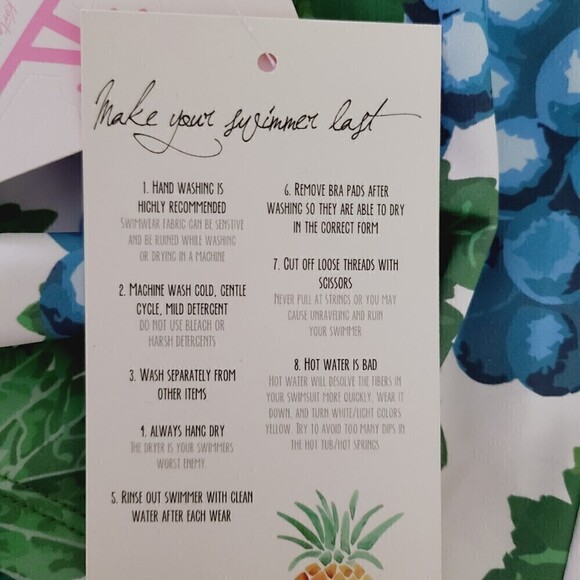 Make your swimmer last
1. Hand washing is
highly recommended
Swimwear fabric can be senstive
and be ruined while washing
or drying in a machine
2. Machine wash cold, gentle
cycle, mild detergent
do not use bleach or
harsh detergents
3. Wash separately from
other items
4. always hang dry
The dryer is your swimmers
worst enemy.
5. Rinse out swimmer with clean
water after each wear
6. Remove bra pads after
washing so they are able to dry
in the correct form
7. Cut off loose threads with
scissors
Never pull at strings or you may
cause unraveling and ruin
your swimmer
8. Hot water is bad
Hot water will desolve the fibers in
your swimsuit more quickly, wear it
down, and turn white/light colors
yellow. Try to avoid too many dips in
the hot tub/hot springs